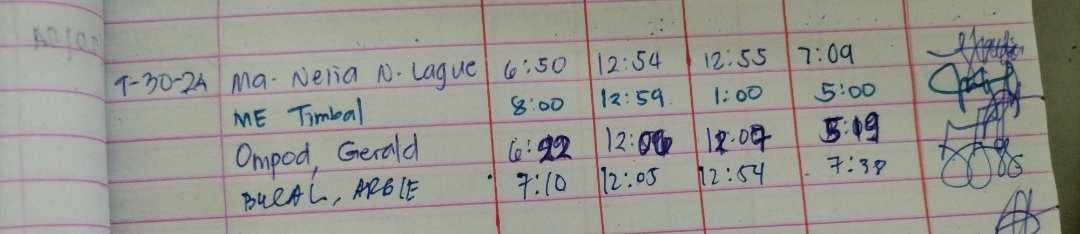 9-30-24 Ma. Neria N. Lague 6:50 12:54 12:55 7:09
ME Timbal 8:00 12:59 1:00 5:00
Ompod, Gerald 6:22 12:06 12:07 5:19
BURAL, ARBIE 7:10 12:05 12:54 7:38